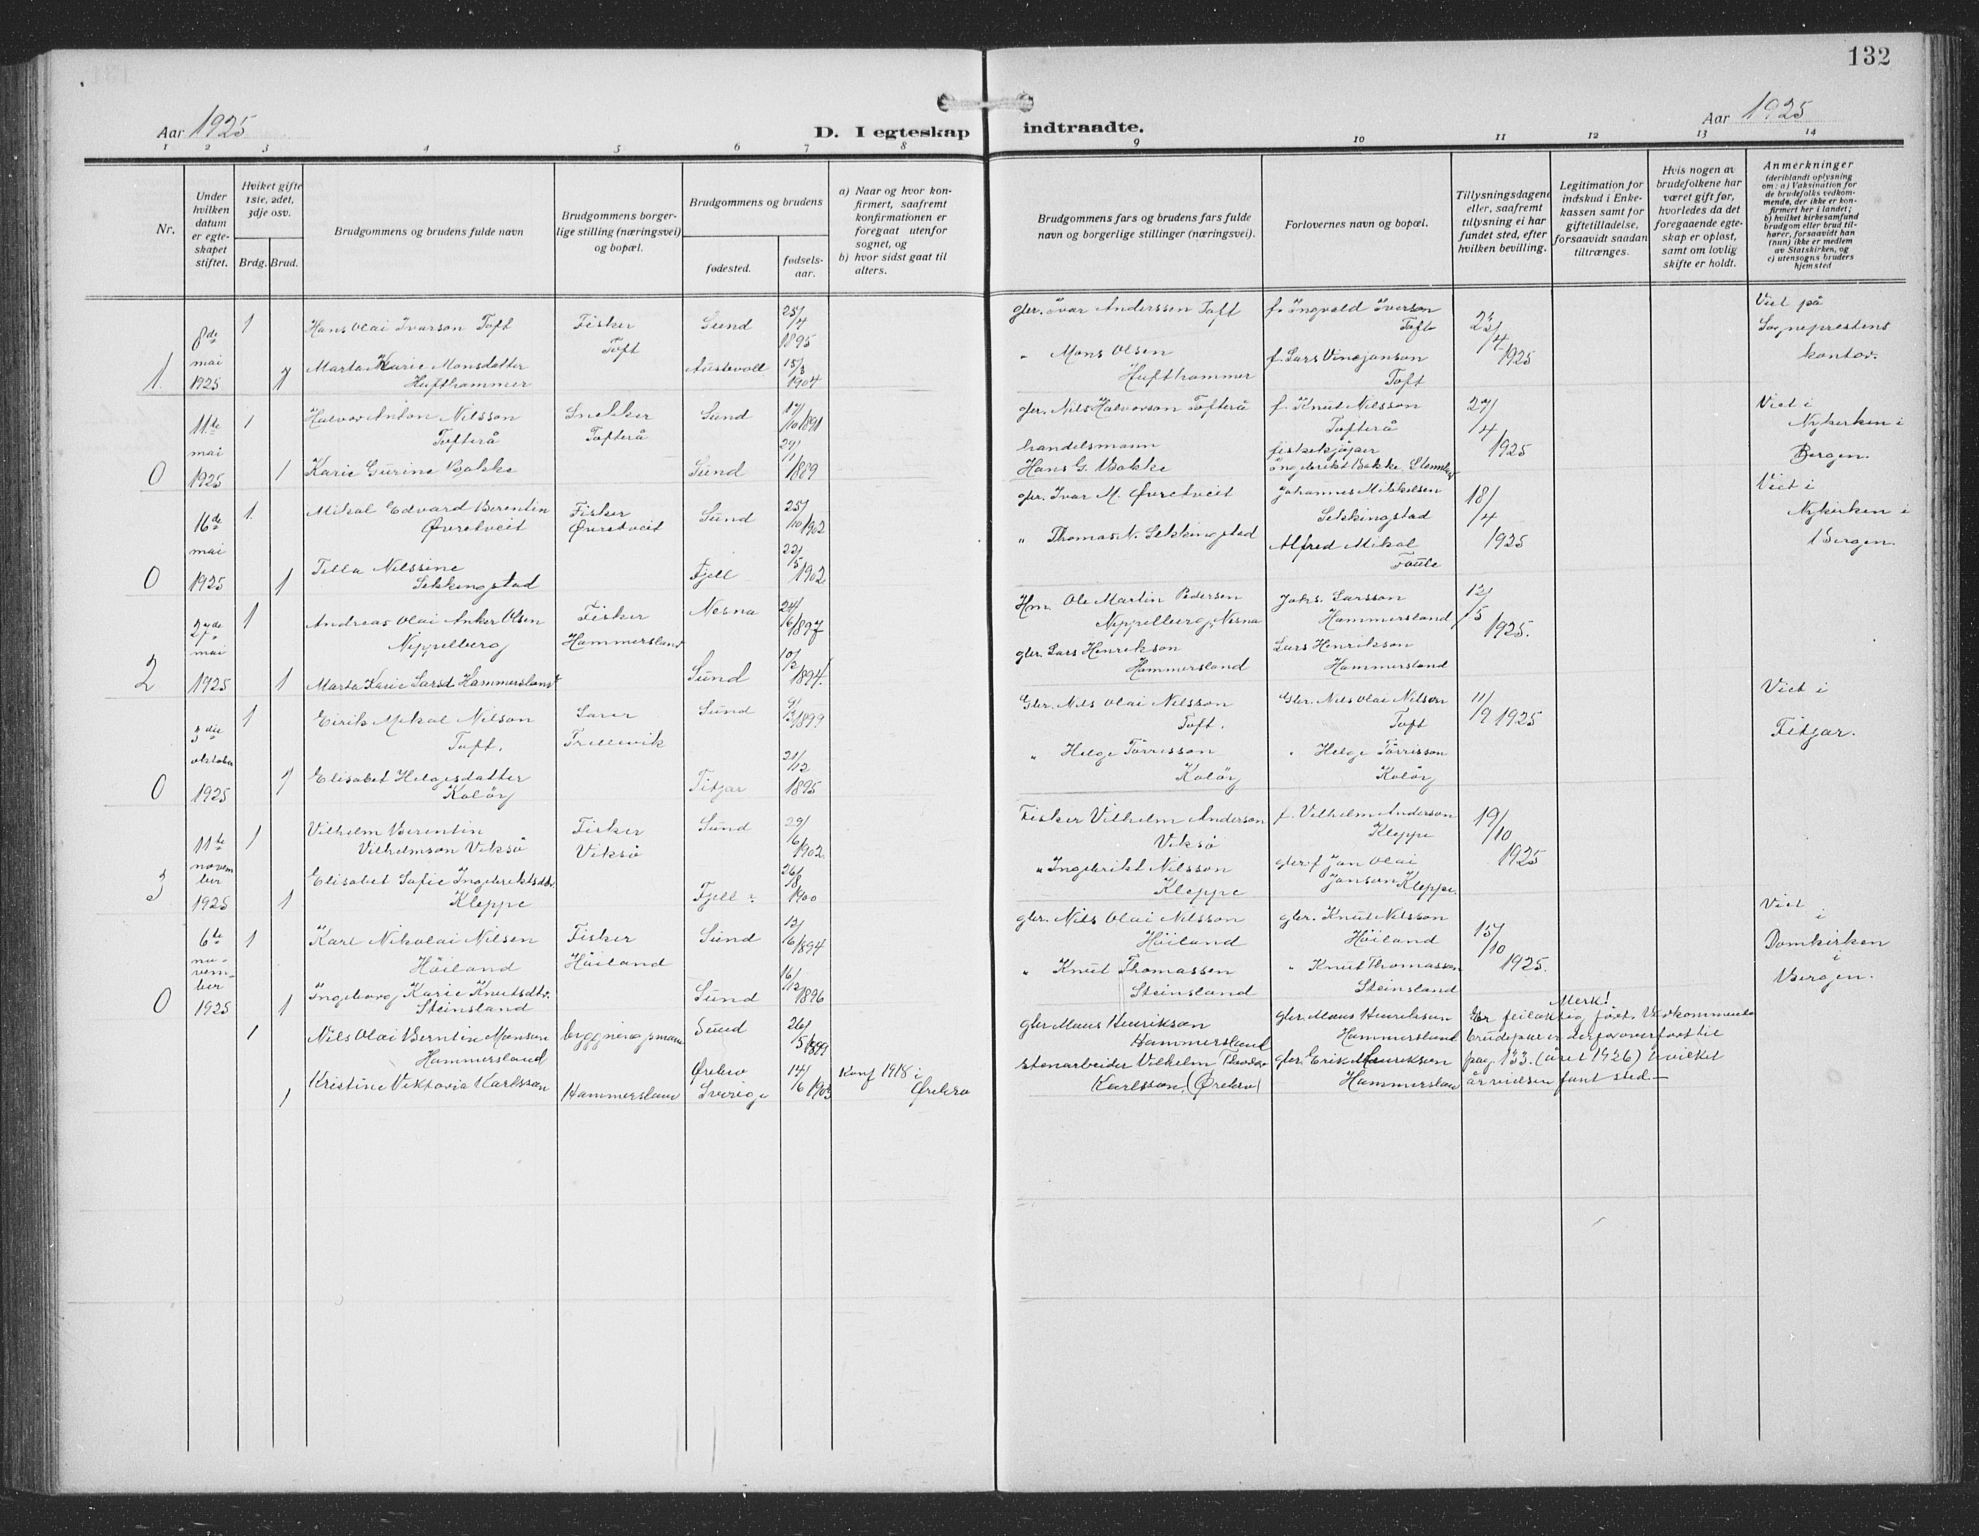 132
Aar 1925
D. I egteskap indtraadte.
Aar 1925
1 2 3 4 5 6 7 8 9 10 11 12 13 14
Nr.
Under hvilken datum er egteskapet stiftet.
Hvilket gifte 1ste, 2det, 3dje osv.
Brdg. Brud.
Brudgommens og brudens fulde navn
Brudgommens borgerlige stilling (næringsvei) og bopæl.
Brudgommens og brudens
fødested.
fødselsaar.
a) Naar og hvor konfirmert, saafremt konfirmationen er foregaat utenfor sognet, og
b) hvor sidst gaat til alters.
Brudgommens fars og brudens fars fulde navn og borgerlige stillinger (næringsvei).
Forlovernes navn og bopæl.
Tillysningsdagene eller, saafremt tillysning ei har fundet sted, efter hvilken bevilling.
Legitimation for indskud i Enkekassen samt for giftetilladelse, forsaavidt saadan tiltrænges.
Hvis nogen av brudefolkene har været gift før, hvorledes da det foregaaende egteskap er opløst, samt om lovlig skifte er holdt.
Anmerkninger
(deriblandt oplysning om: a) Vaksination for de brudefolks vedkommende, der ikke er konfirmert her i landet; b) hvilket kirkesamfund brudgom eller brud tilhører, forsaavidt han (hun) ikke er medlem av Statskirken, og c) utensogns bruders hjemsted
1 8de mai 1925
1 Hans Olai Ivarson Toft Fisker Toft Sund 25/4 1895
gbr. Ivar Anderssen Toft f. Ingvald Iverson Toft 23/4 1925 Viet på Sogneprestens kontor.
1 Marta Karie Monsdatter Hufthammer Austevoll 15/3 1904
" Mons Olsen Hufthammer f. Lars Vingjanson Toft
0 11te mai 1925
1 Halvor Anton Nilsson Tofterå Snekker Tofterå Sund 17/10 1891
gbr. Nils Halvorson Tofterå f. Knut Nilsson Tofterå 27/4 1925 Viet i Nykirken i Bergen.
1 Karie Gurine Bakke Sund 29/11 1889
handelsmann Hans G. Bakke fiskekjøper Ingebrikt Bakke
0 16de mai 1925
1. Mikal Edvard Berentin Øvretveit Fisker Øvretveit Sund 25/10 1902
gbr. Ivar M. Øvretveit Johannes Mikkelsen Sekkingstad 18/4 1925 Viet i Nykirken i Bergen.
1 Tilla Nilssine Sekkingstad Fjell 22/5 1902
" Thomas N. Sekkingstad Alfred Mikal
2 27de mai 1925
1 Andreas Olai Anker Olsen Nippelberg Fisker Hammersland Nesna 24/6 1897
Hm. Ole Martin Pedersen Nippelberg, Nesna Johs. Larsson Hammersland 12/5 1925.
1 Marta Karie Larsd Hammersland Sund 10/3 1894.
gbr. Lars Henrikson Hammersland Lars Henrikson Hammersland
0 3die oktober 1925
1 Eirik Mikal Nilson Toft, Trellevik Sund 9/3 1899
Gbr. Nils Olai Nilsson Toft. Gbr. Nils Olai Nilsen Toft 11/9 1925 Viet i Fitjar.
1 Elisabet Helgesdatter Koløy Fitjar 21/12 1895
" Helge Tørrisson Koløy " Helge Tørrisson Koløy
3 11te november 1925
1 Vilhelm Berentin Vilhelmson Viksø Fisker Viksø Sund 29/6 1902.
Fisker Vilhelm Anderson Viksø f. Vilhelm Anderson Kleppe 19/10 1925
1 Elisabet Sofie Ingebriktsdtr. Kleppe Fjell 26/8 1900
" Ingebrikt Nilsson Kleppe gbr. f. Jan Olai Janson Kleppe.
0 6te november 1925
1 Karl Nikolai Nilsen Høiland Fisker Høiland Sund 12/6 1894
gbr. Nils Olai Nilsson Høiland gbr. Knut Nilsson Høiland 15/10 1925. Viet i Domkirken i Bergen.
1 Ingeborg Karie Knutsdtr. Steinsland Sund 16/12 1896
" Knut Thomassen Steinsland " Knut Thomasson Steinsland
1 Nils Olai Berntin Monsen Hammersland bygningsmann Sund 26/5 1899
gbr Mons Henrikson Hammersland gbr. Mons Henrikson Hammersland
1 Kristine Viktoria Karlsson Hammersland Ørebro Sverige 14/6 1903 Konf 1918 i Ørebro
stenarbeider Vilhelm Theodor Karlsson, (Ørebro) gbr. Erik Henriksen Hammersland
Merk!
Er feilaktig ført. Vedkommende
brudepar er derfor overført til
pag. 133. (året 1926) hvilket
år vielsen fant sted.—